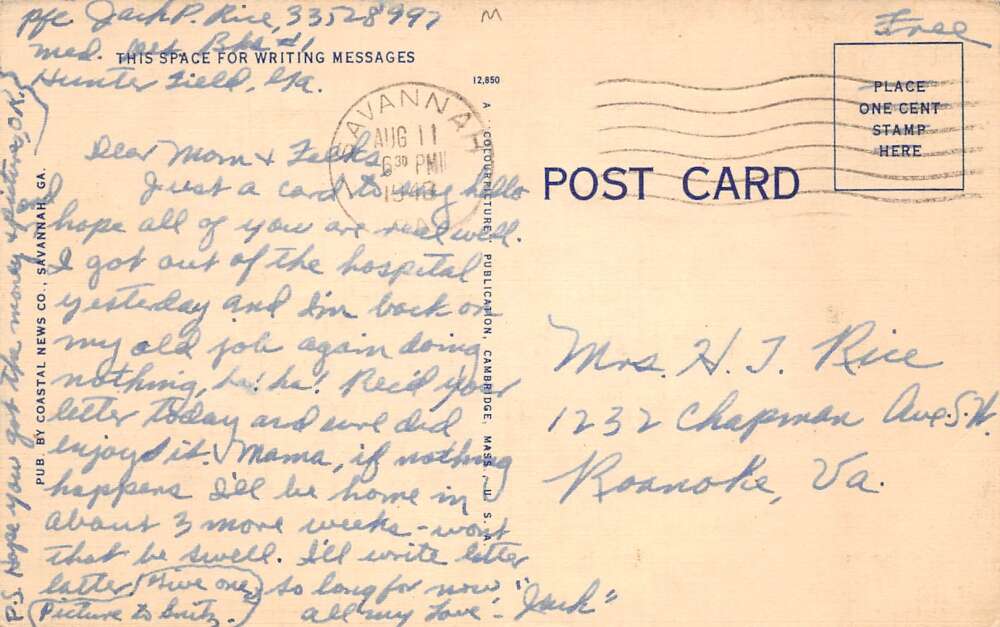 Pfc Jack P. Rice, 33528997
Med. Det. Bks #1
Hunter Field, Ga.
THIS SPACE FOR WRITING MESSAGES
Dear Mom & Folks,
Just a card to say hello
hope all of you are real well.
I got out of the hospital
yesterday and I'm back on
my old job again doing
nothing, ha! ha! Rec'd your
letter today and sure did
enjoyed it. Mama, if nothing
happens I'll be home in
about 3 more weeks - wont
that be swell. I'll write letter
latter so long for now,
all my love - "Jack"
(Give one
Picture to
P.S. Hope you got the money & picture, O.K.
PUB. BY COASTAL NEWS CO., SAVANNAH, GA.
12,850
A "COLOURPICTURE" PUBLICATION, CAMBRIDGE, MASS., U. S. A.
SAVANNAH
AUG 11
6 30 PM
POST CARD
Free
PLACE
ONE CENT
STAMP
HERE
Mrs. H. T. Rice
1232 Chapman Ave. S.W.
Roanoke, Va.